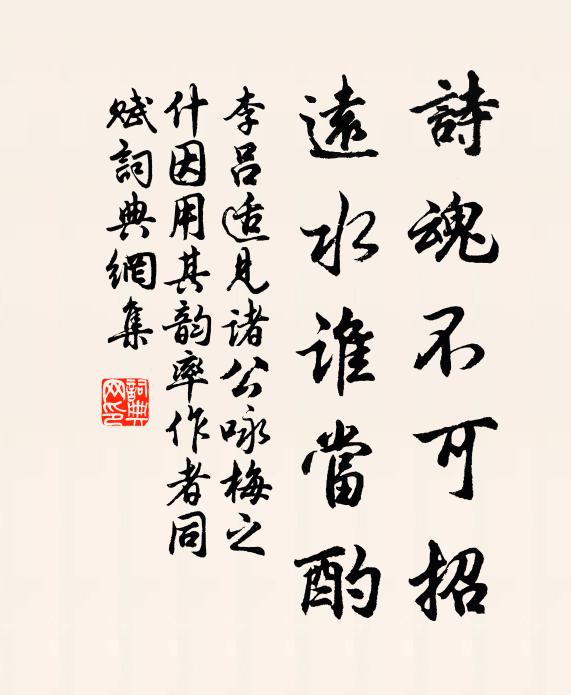 詩魂不可招
遠水誰當酌
李呂適見諸公咏梅之
什因用其韵率作者同
賦詞典網集
詞典网印